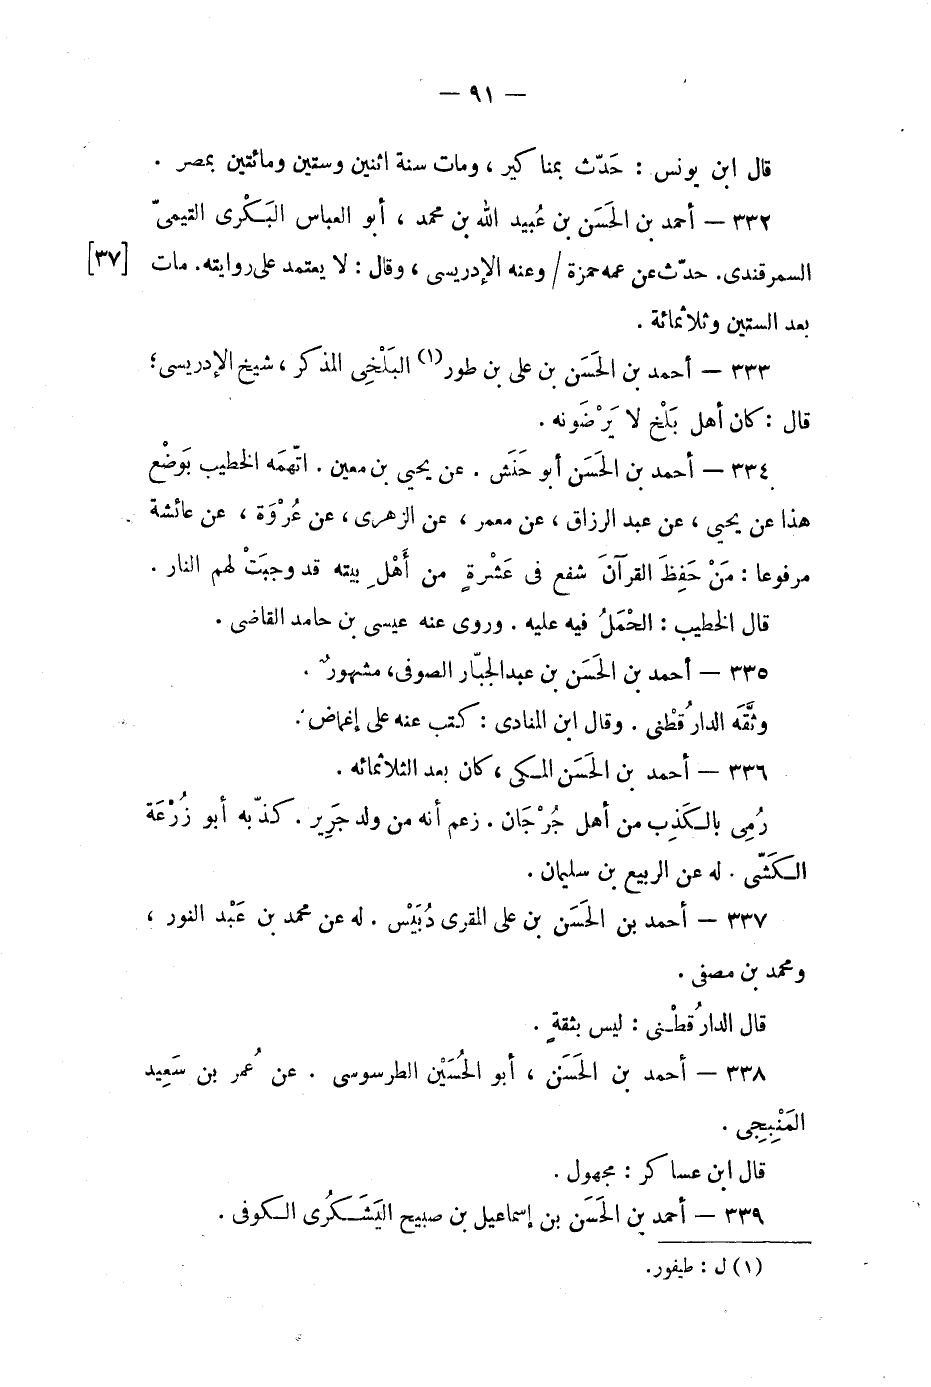 — ٩١ —
قال ابن يونس : حَدّث بمناكير ، ومات سنة اثنين وستين ومائتين بمصر .
٣٣٢ — أحمد بن الحَسَن بن عُبيد الله بن محمد ، أبو العباس البَكْرى القيمىّ
السمرقندى. حدّث عن عمه حمزة / وعنه الإدريسى ، وقال : لا يعتمد على روايته. مات [٣٧]
بعد الستين وثلاثمائة .
٣٣٣ — أحمد بن الحَسَن بن على بن طور(١) البَلْخِى المذكر ، شيخ الإدريسى ؛
قال : كان أهل بَلْخ لا يَرْضَونه .
٣٣٤ — أحمد بن الحَسَن أبو حَنَش . عن يحيى بن معين . اتّهمَه الخطيب بوَضْع
هذا عن يحيى ، عن عبد الرزاق ، عن معمر ، عن الزهرى ، عن عُرْوَة ، عن عائشة
مرفوعا : مَنْ حَفِظَ القرآنَ شفع فى عَشْرةٍ من أَهْلِ بيته قد وجبَتْ لهم النار .
قال الخطيب : الحْمَلُ فيه عليه . وروى عنه عيسى بن حامد القاضى .
٣٣٥ — أحمد بن الحَسَن بن عبدالجبّار الصوفى، مشهورٌ .
وثَّقَه الدارُقطْنى . وقال ابن المنادى : كتب عنه على إغماض .
٣٣٦ — أحمد بن الحَسَن المكى ، كان بعد الثلاثمائه .
رُمِى بالكَذِب من أهل جُرْجَان . زعم أنه من ولد جَرِير . كذّبه أبو زُرْعَة
الكَشّى . له عن الربيع بن سليمان .
٣٣٧ — أحمد بن الحَسَن بن على المقرى دُبَيْس . له عن محمد بن عَبْد النور ،
ومحمد بن مصفى .
قال الدارُقطْنى : ليس بثقةٍ .
٣٣٨ — أحمد بن الحَسَن ، أبو الحُسَيْن الطرسوسى . عن عُمر بن سَعِيد
المَنْبِجِى .
قال ابن عساكر : مجهول .
٣٣٩ — أحمد بن الحَسَن بن إسماعيل بن صبيح اليَشَكُرى الكوفى .
(١) ل : طيفور.